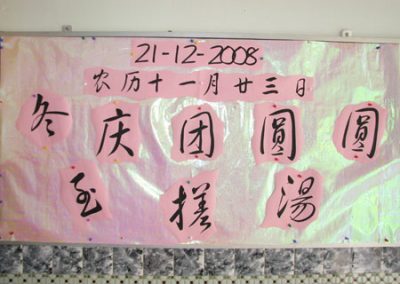 21-12-2008
农历十一月廿三日
冬庆团圓圓
至搓湯